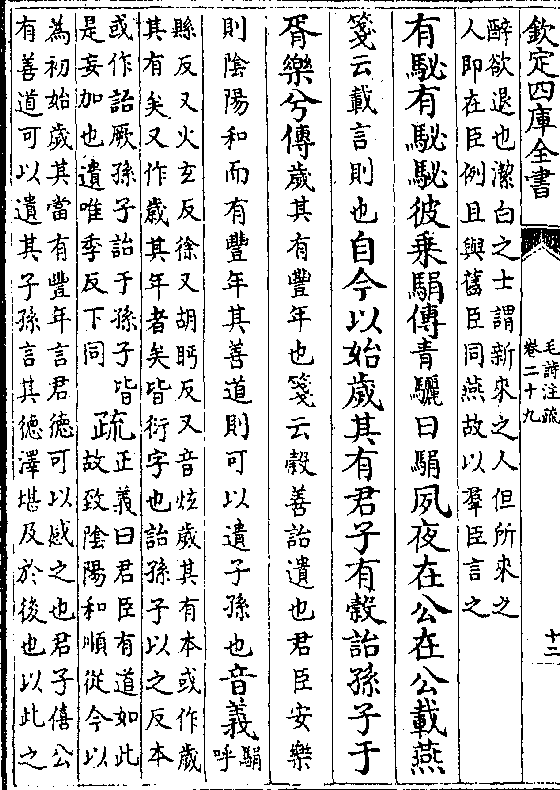 欽定四庫全書
毛詩注疏
卷二十九
十二
醉欲退也潔白之士謂新來之人但所來之
人即在臣例且與舊臣同燕故以羣臣言之
有駜有駜駜彼乗駽傳青驪曰駽夙夜在公在公載燕
箋云載言則也自今以始歲其有君子有穀詒孫子于
胥樂兮傳歲其有豐年也箋云穀善詒遺也君臣安樂
則陰陽和而有豐年其善道則可以遺子孫也音義駽呼
縣反又火𤣥反徐又胡眄反又音炫歲其有本或作歲
其有矣又作歲其年者矣皆衍字也詒孫子以之反本
或作詒厥孫子詒于孫子皆
是妄加也遺唯季反下同
疏正義曰君臣有道如此
故致陰陽和順從今以
為初始歲其當有豐年言君德可以感之也君子僖公
有善道可以遺其子孫言其德澤堪及於後也以此之